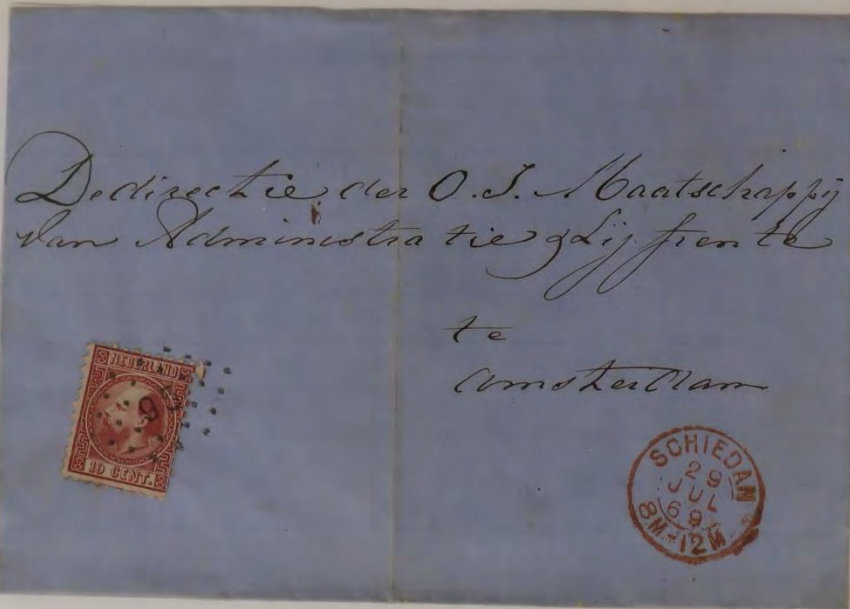 De directie der O. I. Maatschappij
van Administratie & Lijfrente
te
Amsterdam
NEDERLAND
10 CENT.
SCHIEDAM
29
JUL
69
8M-12M